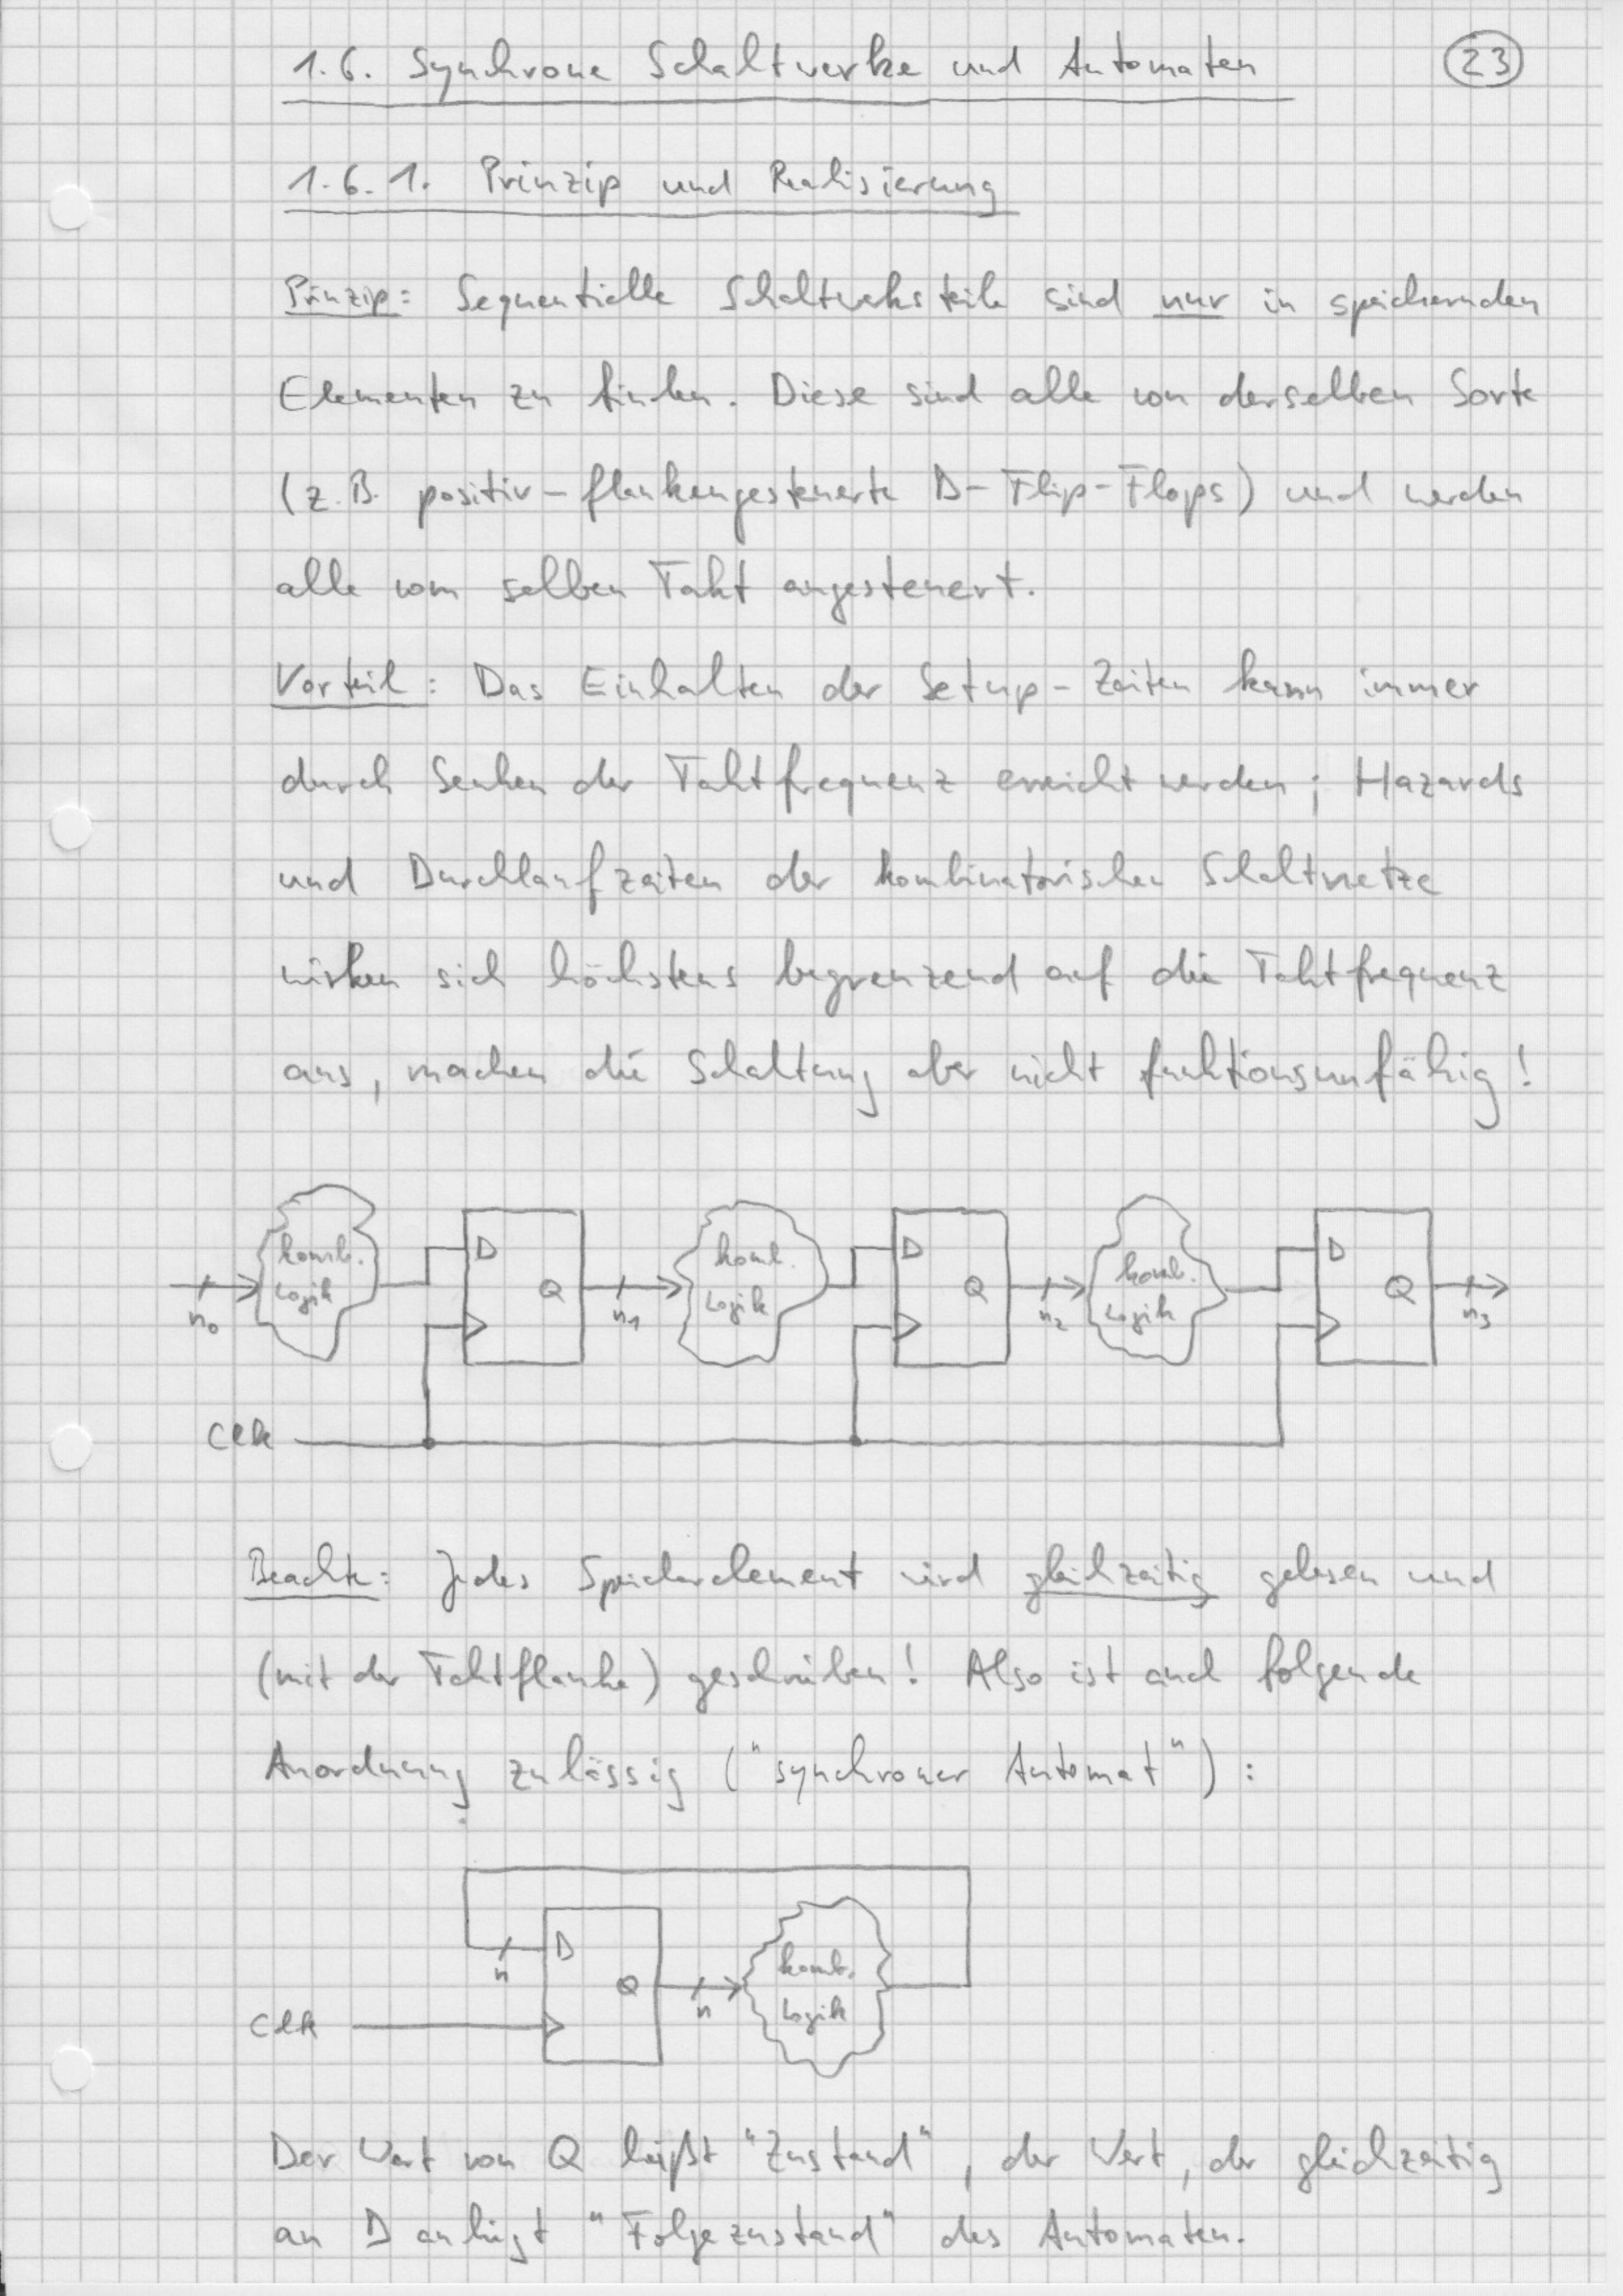 1.6. Synchrone Schaltwerke und Automaten
23
1.6.1. Prinzip und Realisierung
Prinzip: Sequentielle Schaltwerksteile sind nur in speichernden
Elementen zu finden. Diese sind alle von derselben Sorte
(z.B. positiv-flankengesteuerte D-Flip-Flops) und werden
alle vom selben Takt angesteuert.
Vorteil: Das Einhalten der Setup-Zeiten kann immer
durch Senken der Taktfrequenz erreicht werden; Hazards
und Durchlaufzeiten der kombinatorischen Schaltnetze
wirken sich höchstens begrenzend auf die Taktfrequenz
aus, machen die Schaltung aber nicht funktionsunfähig!
komb. D komb. D komb. D
Logik Q Logik Q Logik Q
n0 n1 n2 n3
Clk
Beachte: Jedes Speicherelement wird gleichzeitig gelesen und
(mit der Taktflanke) geschrieben! Also ist auch folgende
Anordnung zulässig ("synchroner Automat"):
D komb.
n Q n Logik
Clk
Der Wert von Q heißt "Zustand", der Wert, der gleichzeitig
an D anliegt "Folgezustand" des Automaten.